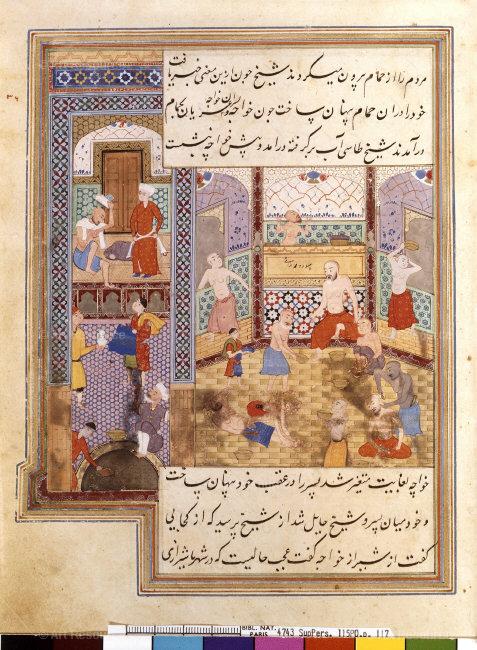 مردم را از حمام بیرون میکردند شیخ چون بدین معنی خبر یافت
خود را در آن حمام پنهان ساخت چون خواجه و آن خواجه بحمام
درآمدند شیخ طاسی آب برگرفته درآمد و پیش خواجه نشست
خواجه بغایت متغیر شد پسر را در عقب خود پنهان ساخت
و خود میان پسر و شیخ حایل شد از شیخ پرسید که از کجایی
گفت از شیراز خواجه گفت عجب حالیست که در شهر ما شیرازی
BIBL. NAT. PARIS
4743 SupPers. 1150, p. 117